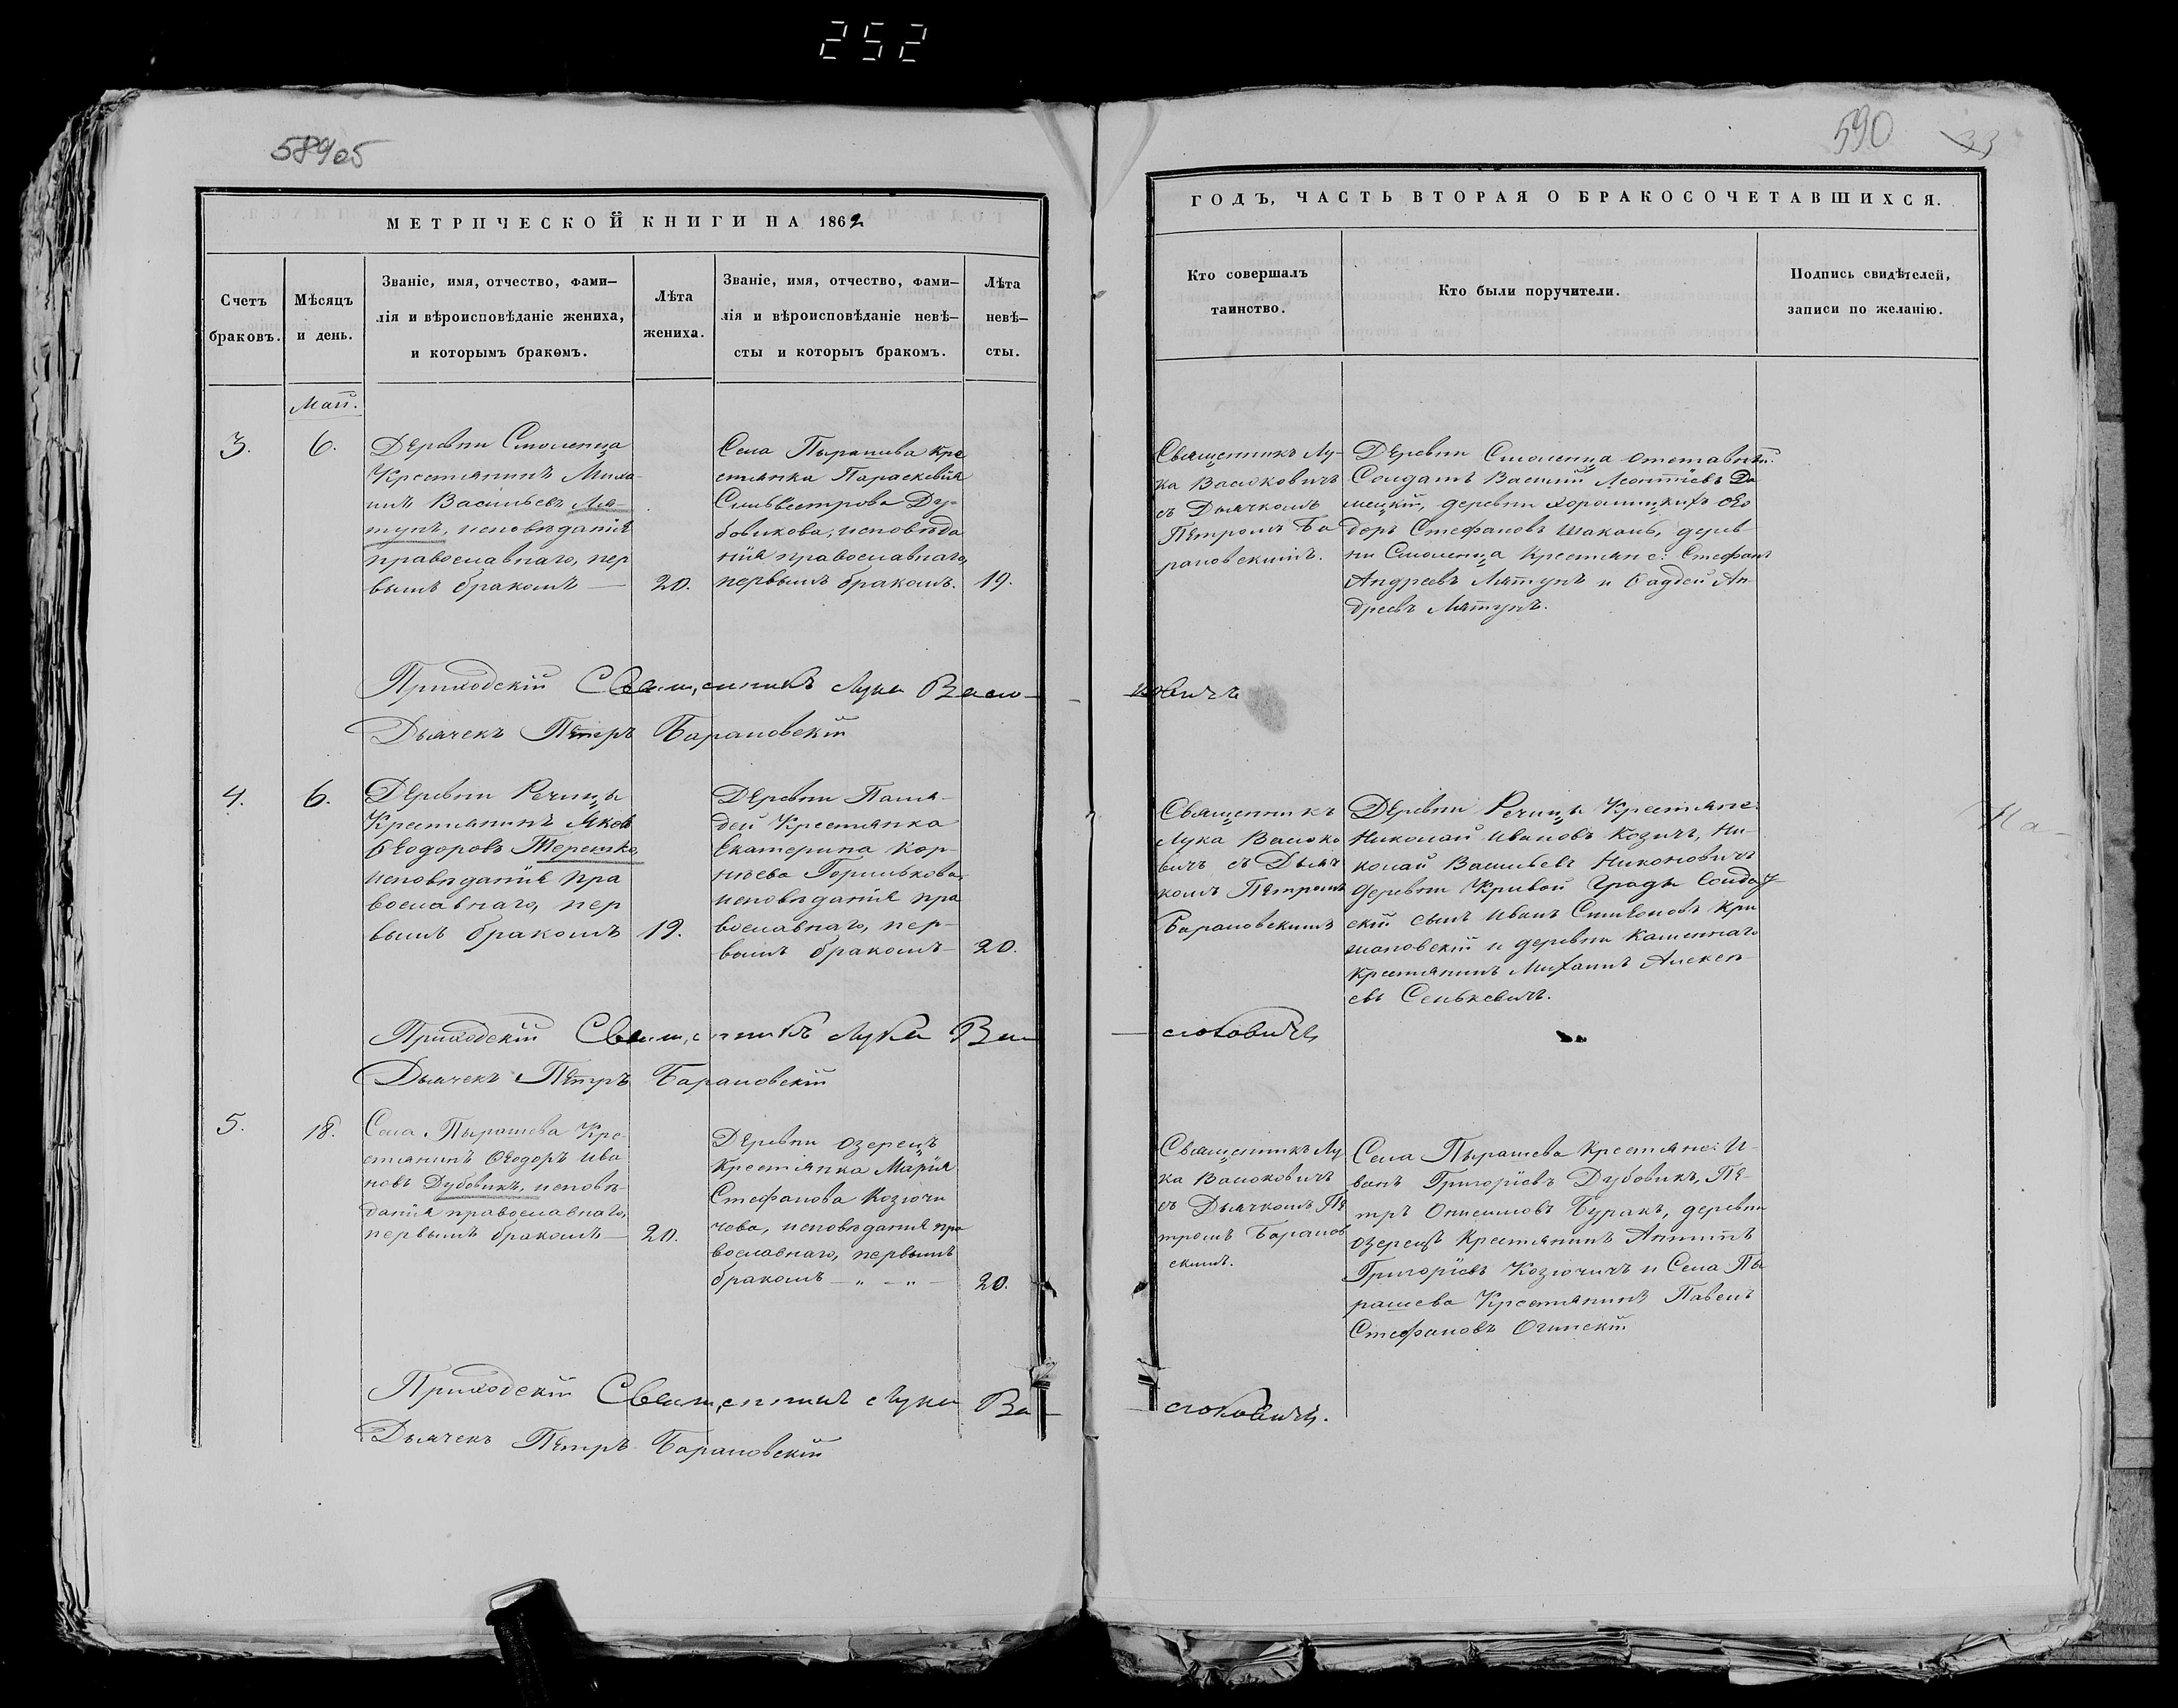 252
589об
МЕТРИЧЕСКОЙ КНИГИ НА 1862
Счетъ
браковъ.
Мѣсяцъ
и день.
Званіе, имя, отчество, фами-
лія и вѣроисповѣданіе жениха,
и которымъ бракомъ.
Лѣта
жениха.
Званіе, имя, отчество, фами-
лія и вѣроисповѣданіе невѣ-
сты и которыъ бракомъ.
Лѣта
невѣ-
сты.
Маій.
3.
6.
Деревни Смоленца
Крестянинъ Миха
илъ Васильевъ Ля-
тунъ, исповѣданія
православнаго, пер
вымъ бракомъ —
20.
Села Пырашева Кре
стянка Параскевія
Сильвестрова Ду-
бовикова, исповѣда
нія православнаго,
первымъ бракомъ.
19.
Приходскій Священникъ Лука Васю-
Дьячекъ Петръ Барановскій
4.
6.
Деревни Речицы
Крестянинъ Яковъ
Ѳеодоровъ Терешко,
исповѣданія пра
вославнаго, пер
вымъ бракомъ
19.
Деревни
Крестянка
Екатерина Кор-
нѣева Горошкова
исповѣданія пра
вославнаго, пер-
вымъ бракомъ-
20.
Приходскій Священникъ Лука Ва
Дьячекъ Петръ Барановскій
5.
18.
Села Пырашева Кре-
стянинъ Ѳеодоръ Ива
новъ Дубовикъ, исповѣ-
данія православнаго,
первымъ бракомъ —
20.
Деревни Озерецъ
Крестянка Марія
Стефанова Козючи
чова, исповѣданія пра
вославнаго, первымъ
бракомъ — „ — „ —
20.
Приходскій Священникъ Лука Ва-
Дьячекъ Петръ Барановскій
590 33
ГОДЪ, ЧАСТЬ ВТОРАЯ О БРАКОСОЧЕТАВШИХСЯ.
Кто совершалъ
таинство.
Кто были поручители.
Подпись свидѣтелей,
записи по желанію.
Священникъ Лу-
ка Васюковичъ
съ Дьячкомъ
Петромъ Ба
рановскимъ.
Деревни Смоленца отставный
Солдатъ Василій Леонтіевъ
деревни Ѳео
доръ Стефановъ Шакаль, дерев
ни Смоленца Крестяне: Стефанъ
Андреевъ Лятунъ и Ѳадей Ан-
дреевъ Лятунъ.
ковичъ
Священникъ
Лука Васюко
вичъ съ Дьяч
комъ Петромъ
Барановскимъ
Деревни Речицы Крестяне:
Николай Ивановъ Козичъ, Ни-
колай Васильевъ Никоновичъ
деревни Кривой Гряды Солдат-
скій сынъ Иванъ Симеоновъ Кри
и деревни Каменнаго
Крестянинъ Михаилъ Алексѣ-
евъ Сенькевичъ.
сюковичъ
На-
Священникъ Лу
ка Васюковичъ
съ Дьячкомъ Пе
тромъ Баранов
скимъ.
Села Пырашева Крестяне: И-
ванъ Григоріевъ Дубовикъ, Пе-
тръ Онисимовъ Буракъ, деревни
Озерецъ Крестянинъ Антипъ
Григоріевъ Козючичъ и Села Пы
рашева Крестянинъ Павелъ
Стефановъ Огинскій
сюковичъ.